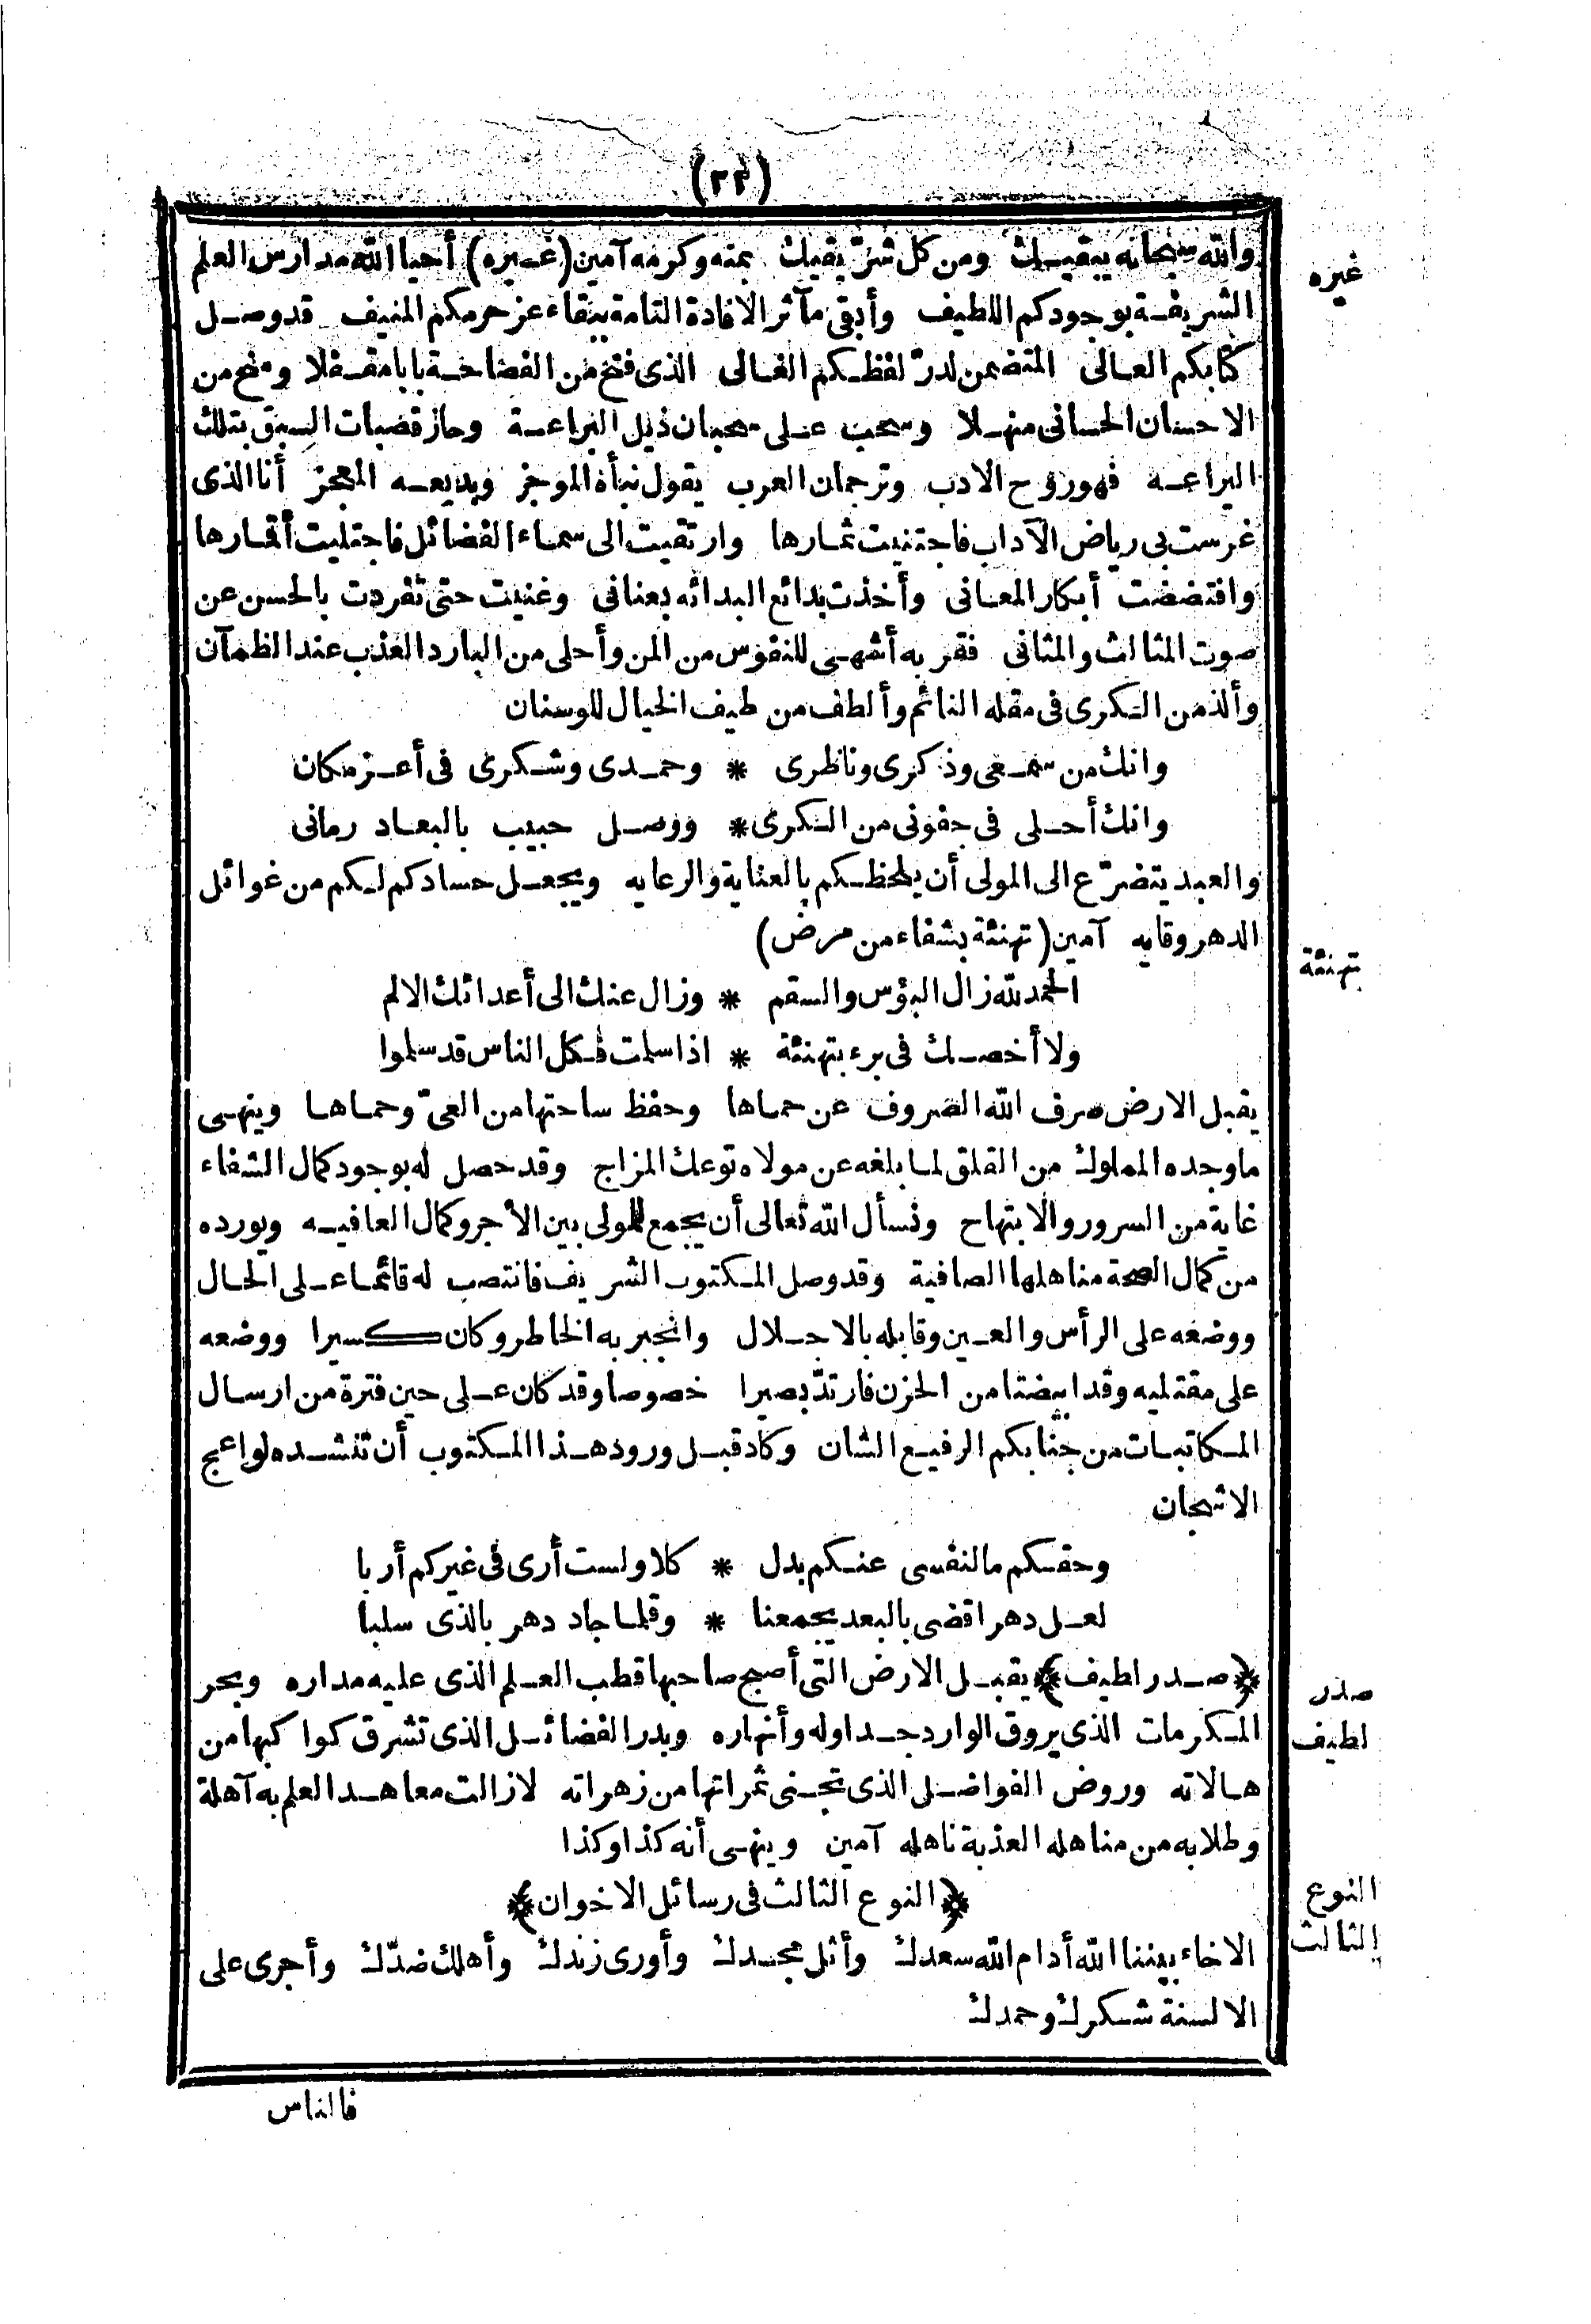 (٢٢)
والله سبحانه يبقيك ومن كل شر يقيك بمنه وكرمه آمين (غيره) أحيا الله مدارس العلم
غيره
الشريفة بوجودكم اللطيف وأبقى مآثر الافادة التامة ببقاء عز حرمكم المنيف قد وصل
كتابكم العالى المتضمن لدرّ لفظكم الغالى الذى فتح من الفصاحة بابا مقفلا ومنح من
الاحسان الحسانى منهلا وسحب على سحبان ذيل البراعة وحاز قصبات السبق بتلك
اليراعه فهو روح الادب وترجمان العرب يقول نبأة الموجز وبديعه المعجز أنا الذى
غرست بى رياض الآداب فاجتنيت ثمارها وارتقيت الى سماء الفضائل فاجتليت أقمارها
وافتضضت أبكار المعانى وأخذت بدائع البدائه بعنانى وغنيت حتى تفردت بالحسن عن
صوت المثالث والمثانى فقربه أشهى للنفوس من المن وأحلى من البارد العذب عند الظمآن
وألذ من الكرى فى مقله النائم وألطف من طيف الخيال للوسنان
وانك من سمعى وذكرى وناظرى * وحمدى وشكرى فى أعز مكان
وانك أحلى فى جفونى من الكرى * ووصل حبيب بالبعاد رمانى
والعبد يتضرّع الى المولى أن يلحظكم بالعناية والرعايه ويجعل حسادكم لكم من غوائل
الدهر وقايه آمين (تهنئة بشفاء من مرض)
تهنئة
الحمد لله زال البؤس والسقم * وزال عنك الى أعدائك الالم
ولا أخصك فى برء بتهنئة * اذا سلمت فكل الناس قد سلموا
يقبل الارض صرف الله الصروف عن حماها وحفظ ساحتها من الغىّ وحماها وينهى
ما وجده المملوك من القلق لما بلغه عن مولاه توعك المزاج وقد حصل له بوجود كمال الشفاء
غاية من السرور والابتهاج ونسأل الله تعالى أن يجمع للمولى بين الأجر وكمال العافيه ويورده
من كمال الصحة مناهلها الصافية وقد وصل المكتوب الشريف فانتصب له قائما على الحال
ووضعه على الرأس والعين وقابله بالاجلال وانجبر به الخاطر وكان كسيرا ووضعه
على مقلتيه وقد ابيضتا من الحزن فارتدّ بصيرا خصوصا وقد كان على حين فترة من ارسال
المكاتبات من جنابكم الرفيع الشان وكاد قبل ورود هذا المكتوب أن تنشده لواعج
الاشجان
وحقكم ما لنفسى عنكم بدل * كلا ولست أرى فى غيركم أربا
لعل دهرا قضى بالبعد يجمعنا * وقلما جاد دهر بالذى سلبا
﴿صدر لطيف﴾ يقبل الارض التى أصبح صاحبها قطب العلم الذى عليه مداره وبحر
صدر
المكرمات الذى يروق الوارد جداوله وأنهاره وبدر الفضائل الذى تشرق كواكبها من
لطيف
هالاته وروض الفواضل الذى تجنى ثمراتها من زهراته لازالت معاهد العلم به آهلة
وطلابه من مناهله العذبة ناهله آمين وينهى أنه كذا وكذا
﴿النوع الثالث فى رسائل الاخوان﴾
النوع
الثالث
الاخاء بيننا الله أدام الله سعدك وأثل مجدك وأورى زندك وأهلك ضدّك وأجرى على
الالسنة شكرك وحمدك
فالناس